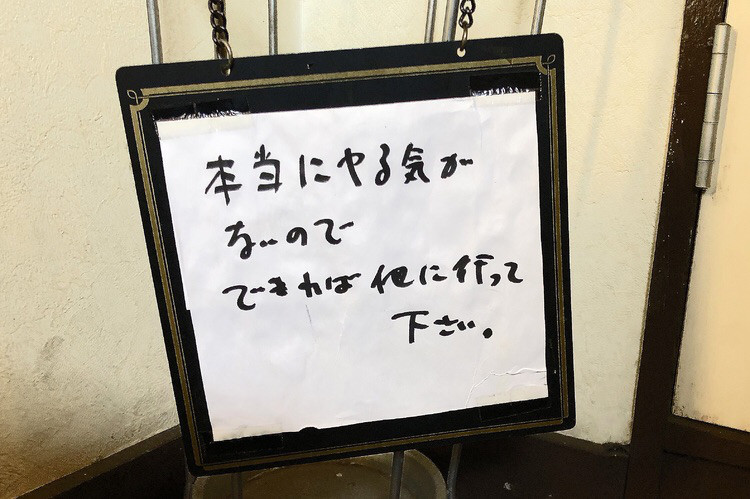 本当にヤる気が
ないので
できれば他に行って
下さい。